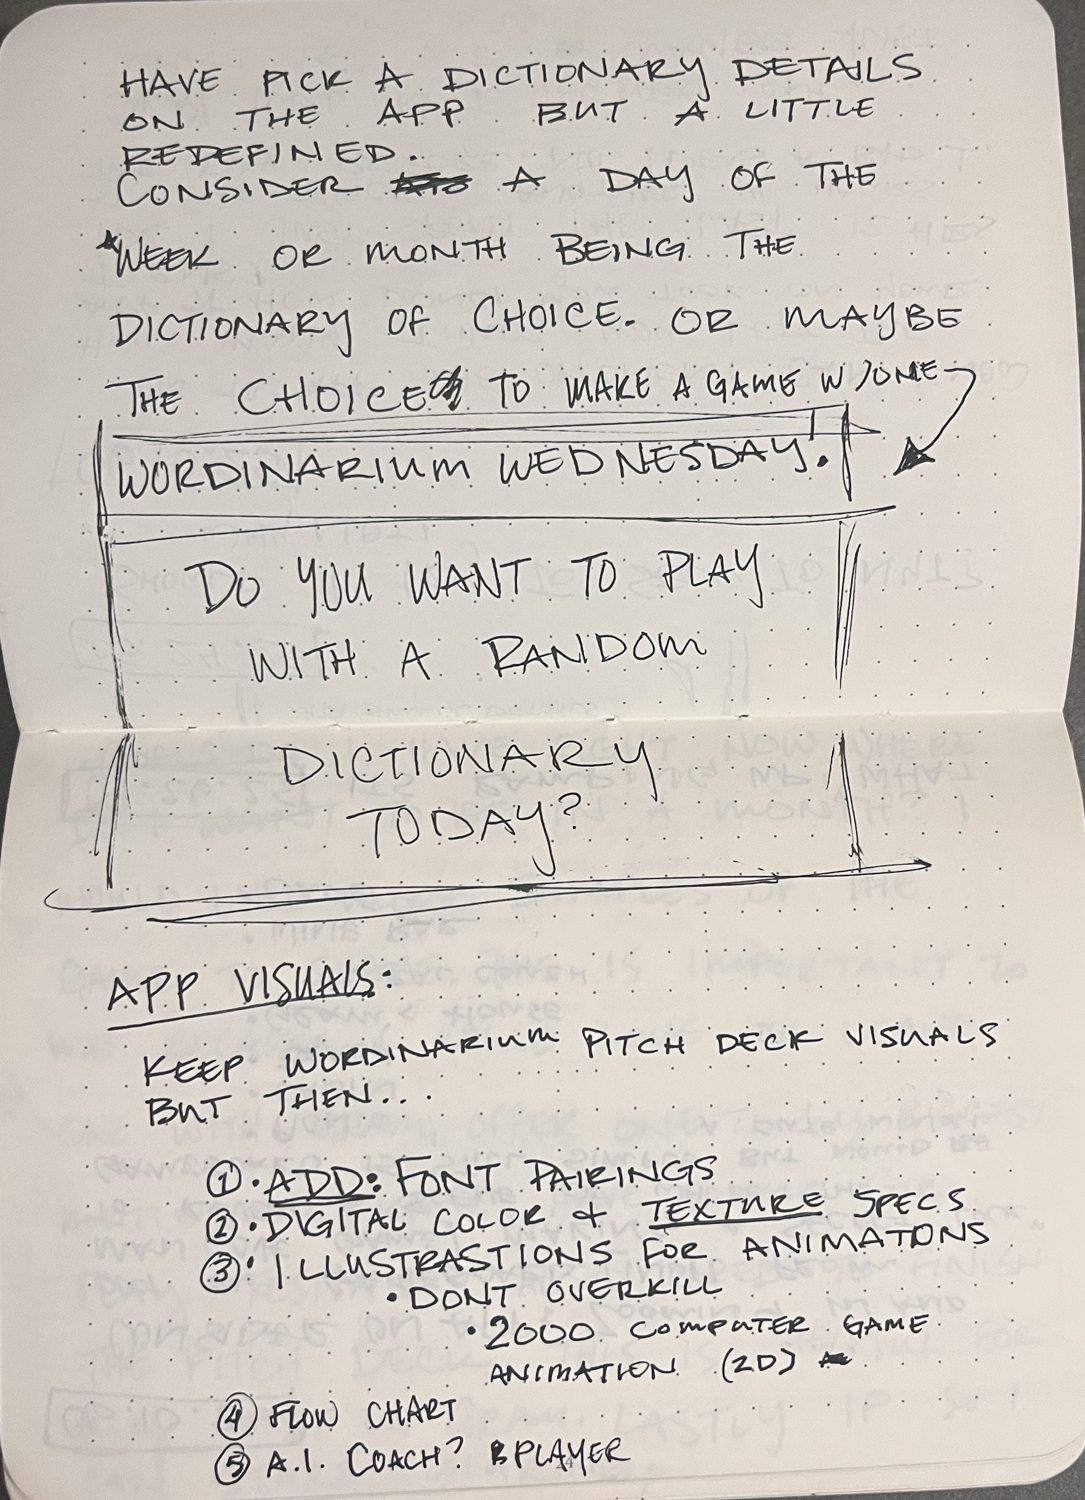 HAVE PICK A DICTIONARY DETAILS
ON THE APP BUT A LITTLE
REDEFINED.
CONSIDER A DAY OF THE
WEEK OR MONTH BEING THE
DICTIONARY OF CHOICE. OR MAYBE
THE CHOICE TO MAKE A GAME W/ONE
WORDINARIUM WEDNESDAY!
DO YOU WANT TO PLAY
WITH A RANDOM
DICTIONARY
TODAY?
APP VISUALS:
KEEP WORDINARIUM PITCH DECK VISUALS
BUT THEN...
① • ADD: FONT PAIRINGS
② • DIGITAL COLOR & TEXTURE SPECS
③ • ILLUSTRASTIONS FOR ANIMATIONS
• DONT OVERKILL
• 2000 COMPUTER GAME
ANIMATION (2D)
④ FLOW CHART
⑤ A.I. COACH? PLAYER